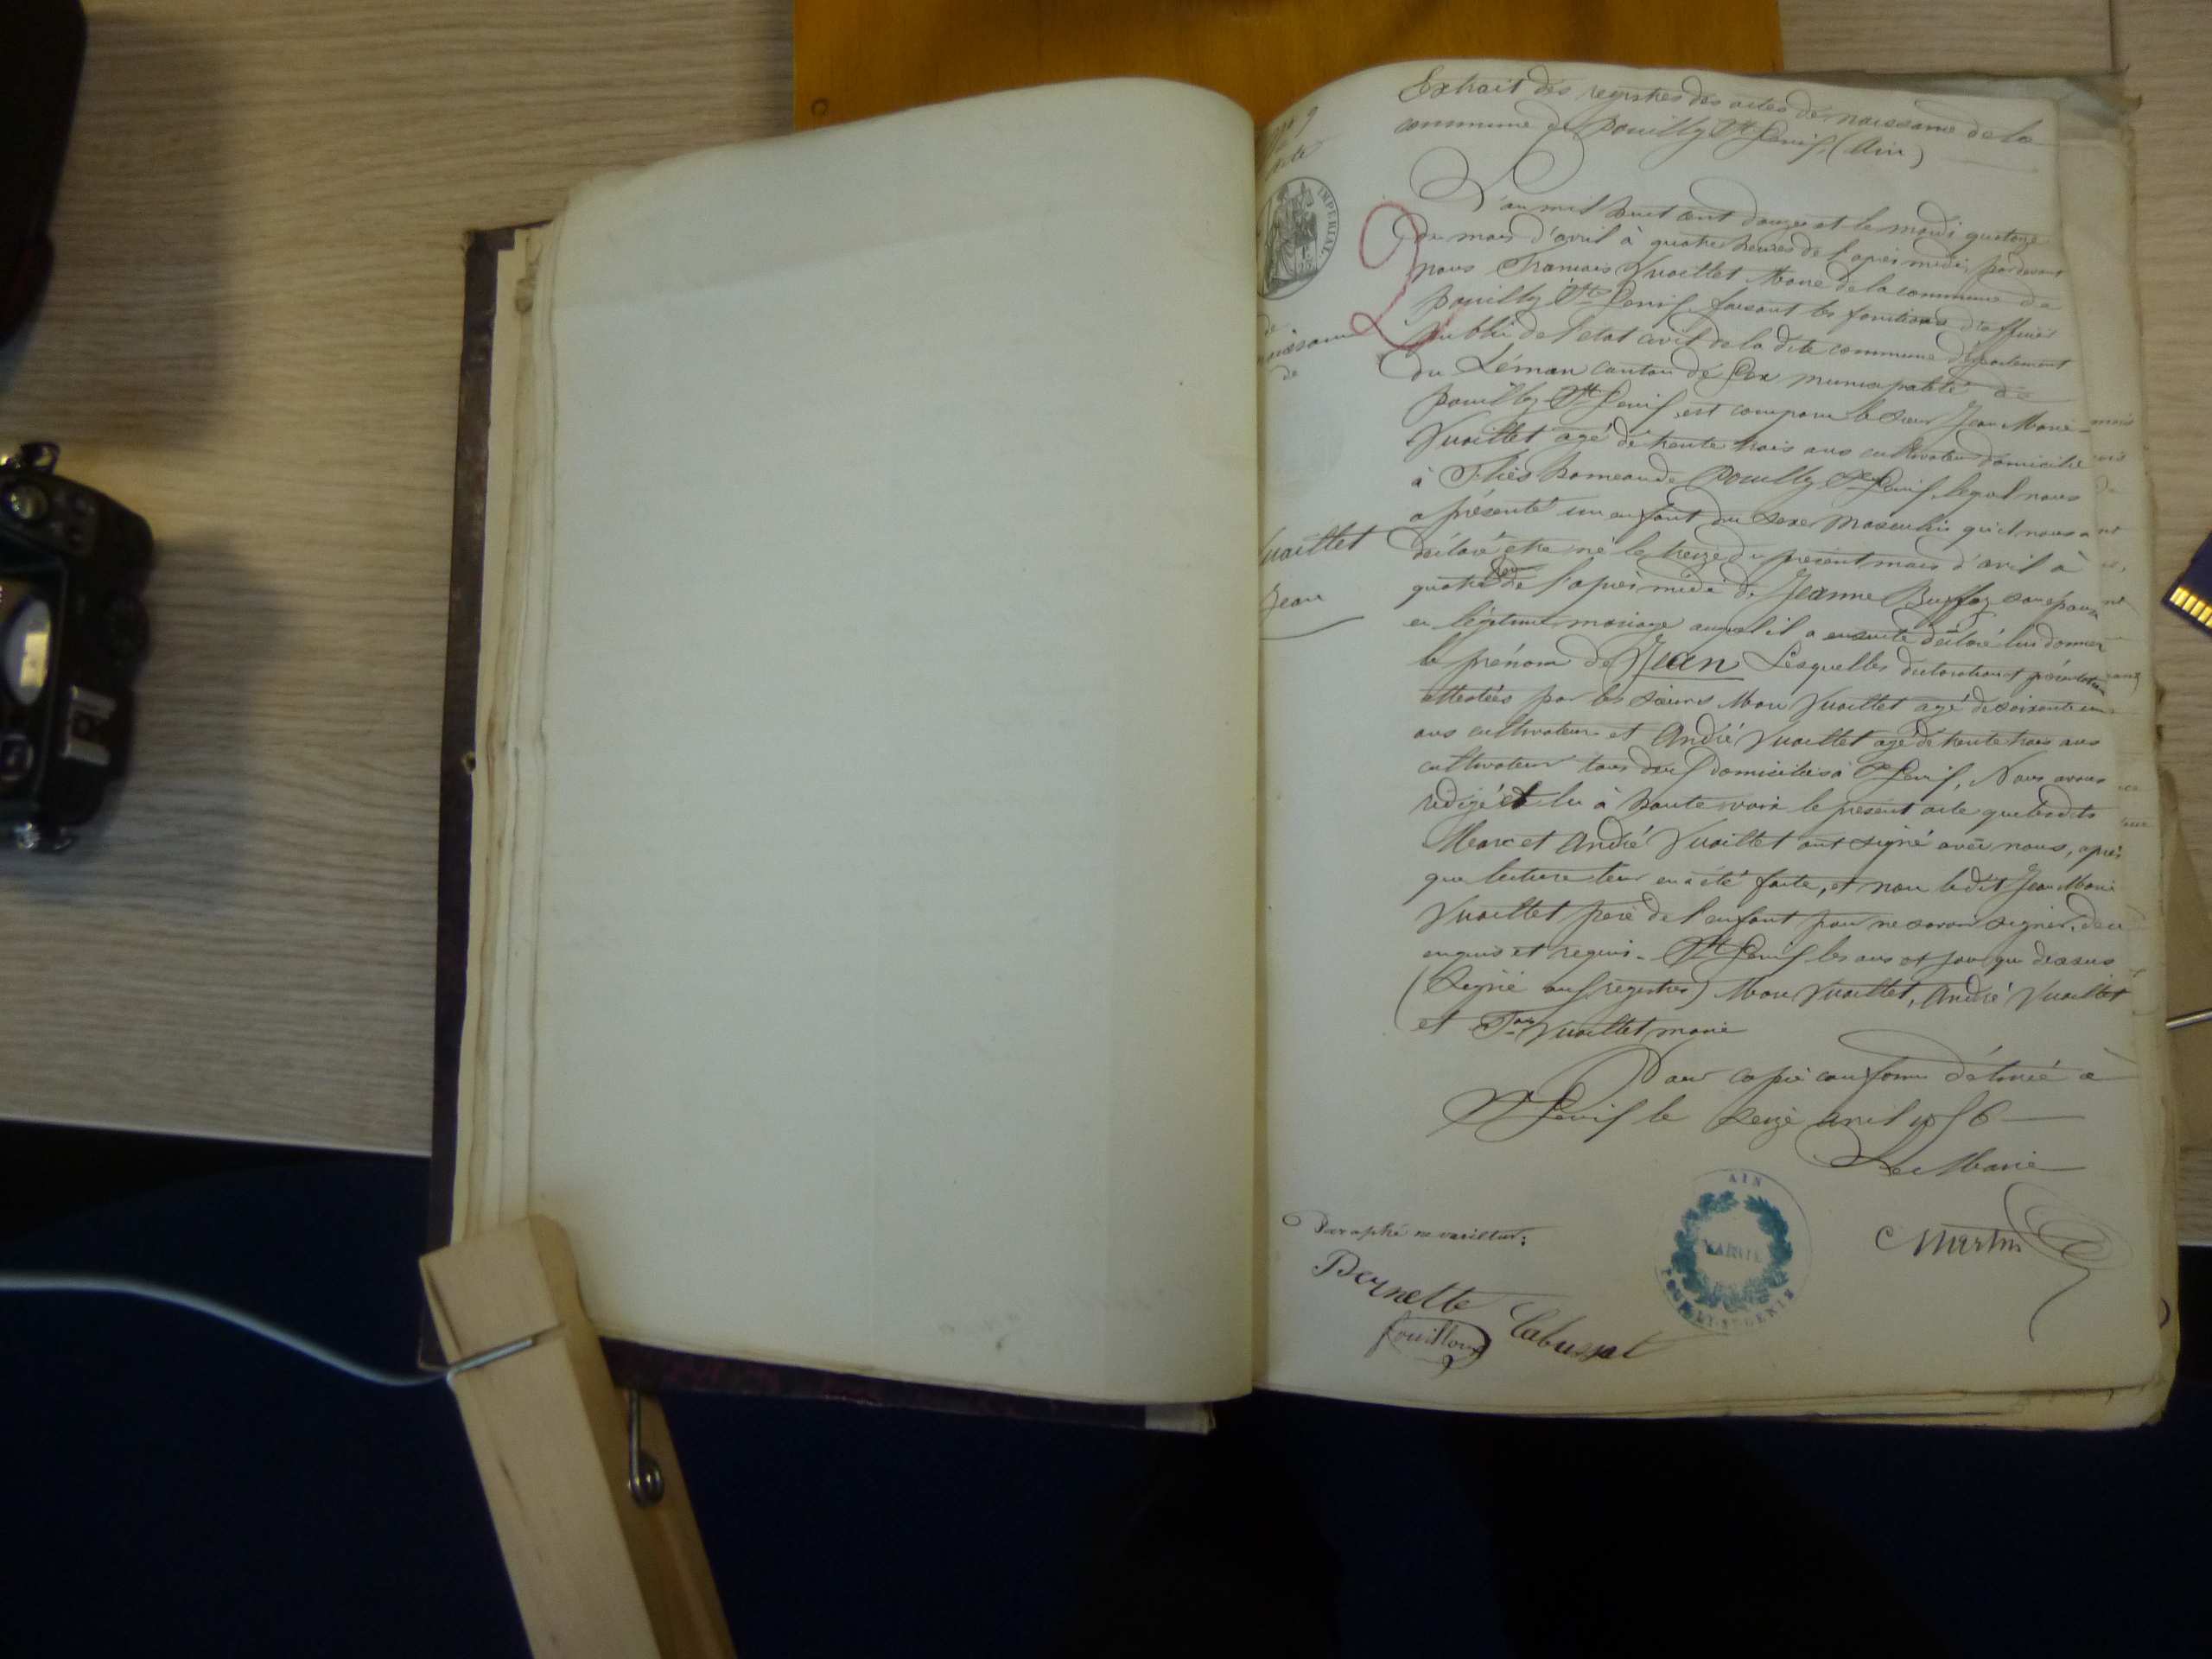 Extrait des registres des actes de naissance de la
commune de Pouilly St Genis, (Ain)
N° 9
acte
IMPERIAL
L'an mil huit cent douze et le mardi quatorze
du mois d'avril à quatre heures de l'après midi, par devant
nous François Vuaillet Maire de la commune de
Pouilly St Genis, faisant les fonctions d'officier
public de l'etat civil de la dite commune département
de
naissance
de
du Léman canton de Gex municipalité de
Pouilly St Genis, est comparu le sieur Jean Marie
Vuaillet agé de trente trois ans cultivateur domicilié
à Flies hameau de Pouilly St Genis, lequel nous
a présenté un enfant du sexe masculin qu'il nous a
Vuaillet
Jean
déclaré etre né le treize du présent mois d'avril à
quatre heures de l'après midi de Jeanne Buffaz son épouse
en légitime mariage auquel il a ensuite déclaré lui donner
le prénom de Jean Lesquelles déclaration et présentation
attestées par les sieurs Marc Vuaillet agé de soixante un
ans cultivateur et André Vuaillet agé de trente trois ans
cultivateur tous deux domiciliés à St Genis, Nous avons
rédigé et lu à haute voix le présent acte que lesdits
Marc et André Vuaillet ont signé avec nous, après
que lecture leur en a été faite, et non ledit Jean Marie
Vuaillet père de l'enfant pour ne savoir signer, de ce
enquis et requis. St Genis les ans et jour que dessus
(Signé aux registres) Marc Vuaillet, André Vuaillet
et Fois Vuaillet maire
Pour copie conforme délivrée à
St Genis le seize avril 1856
Le Maire
Paraphé ne varietur:
AIN
MAIRIE
POUILLY-ST-GENIS
Martin
Pernette
Cabusset
fouilloux